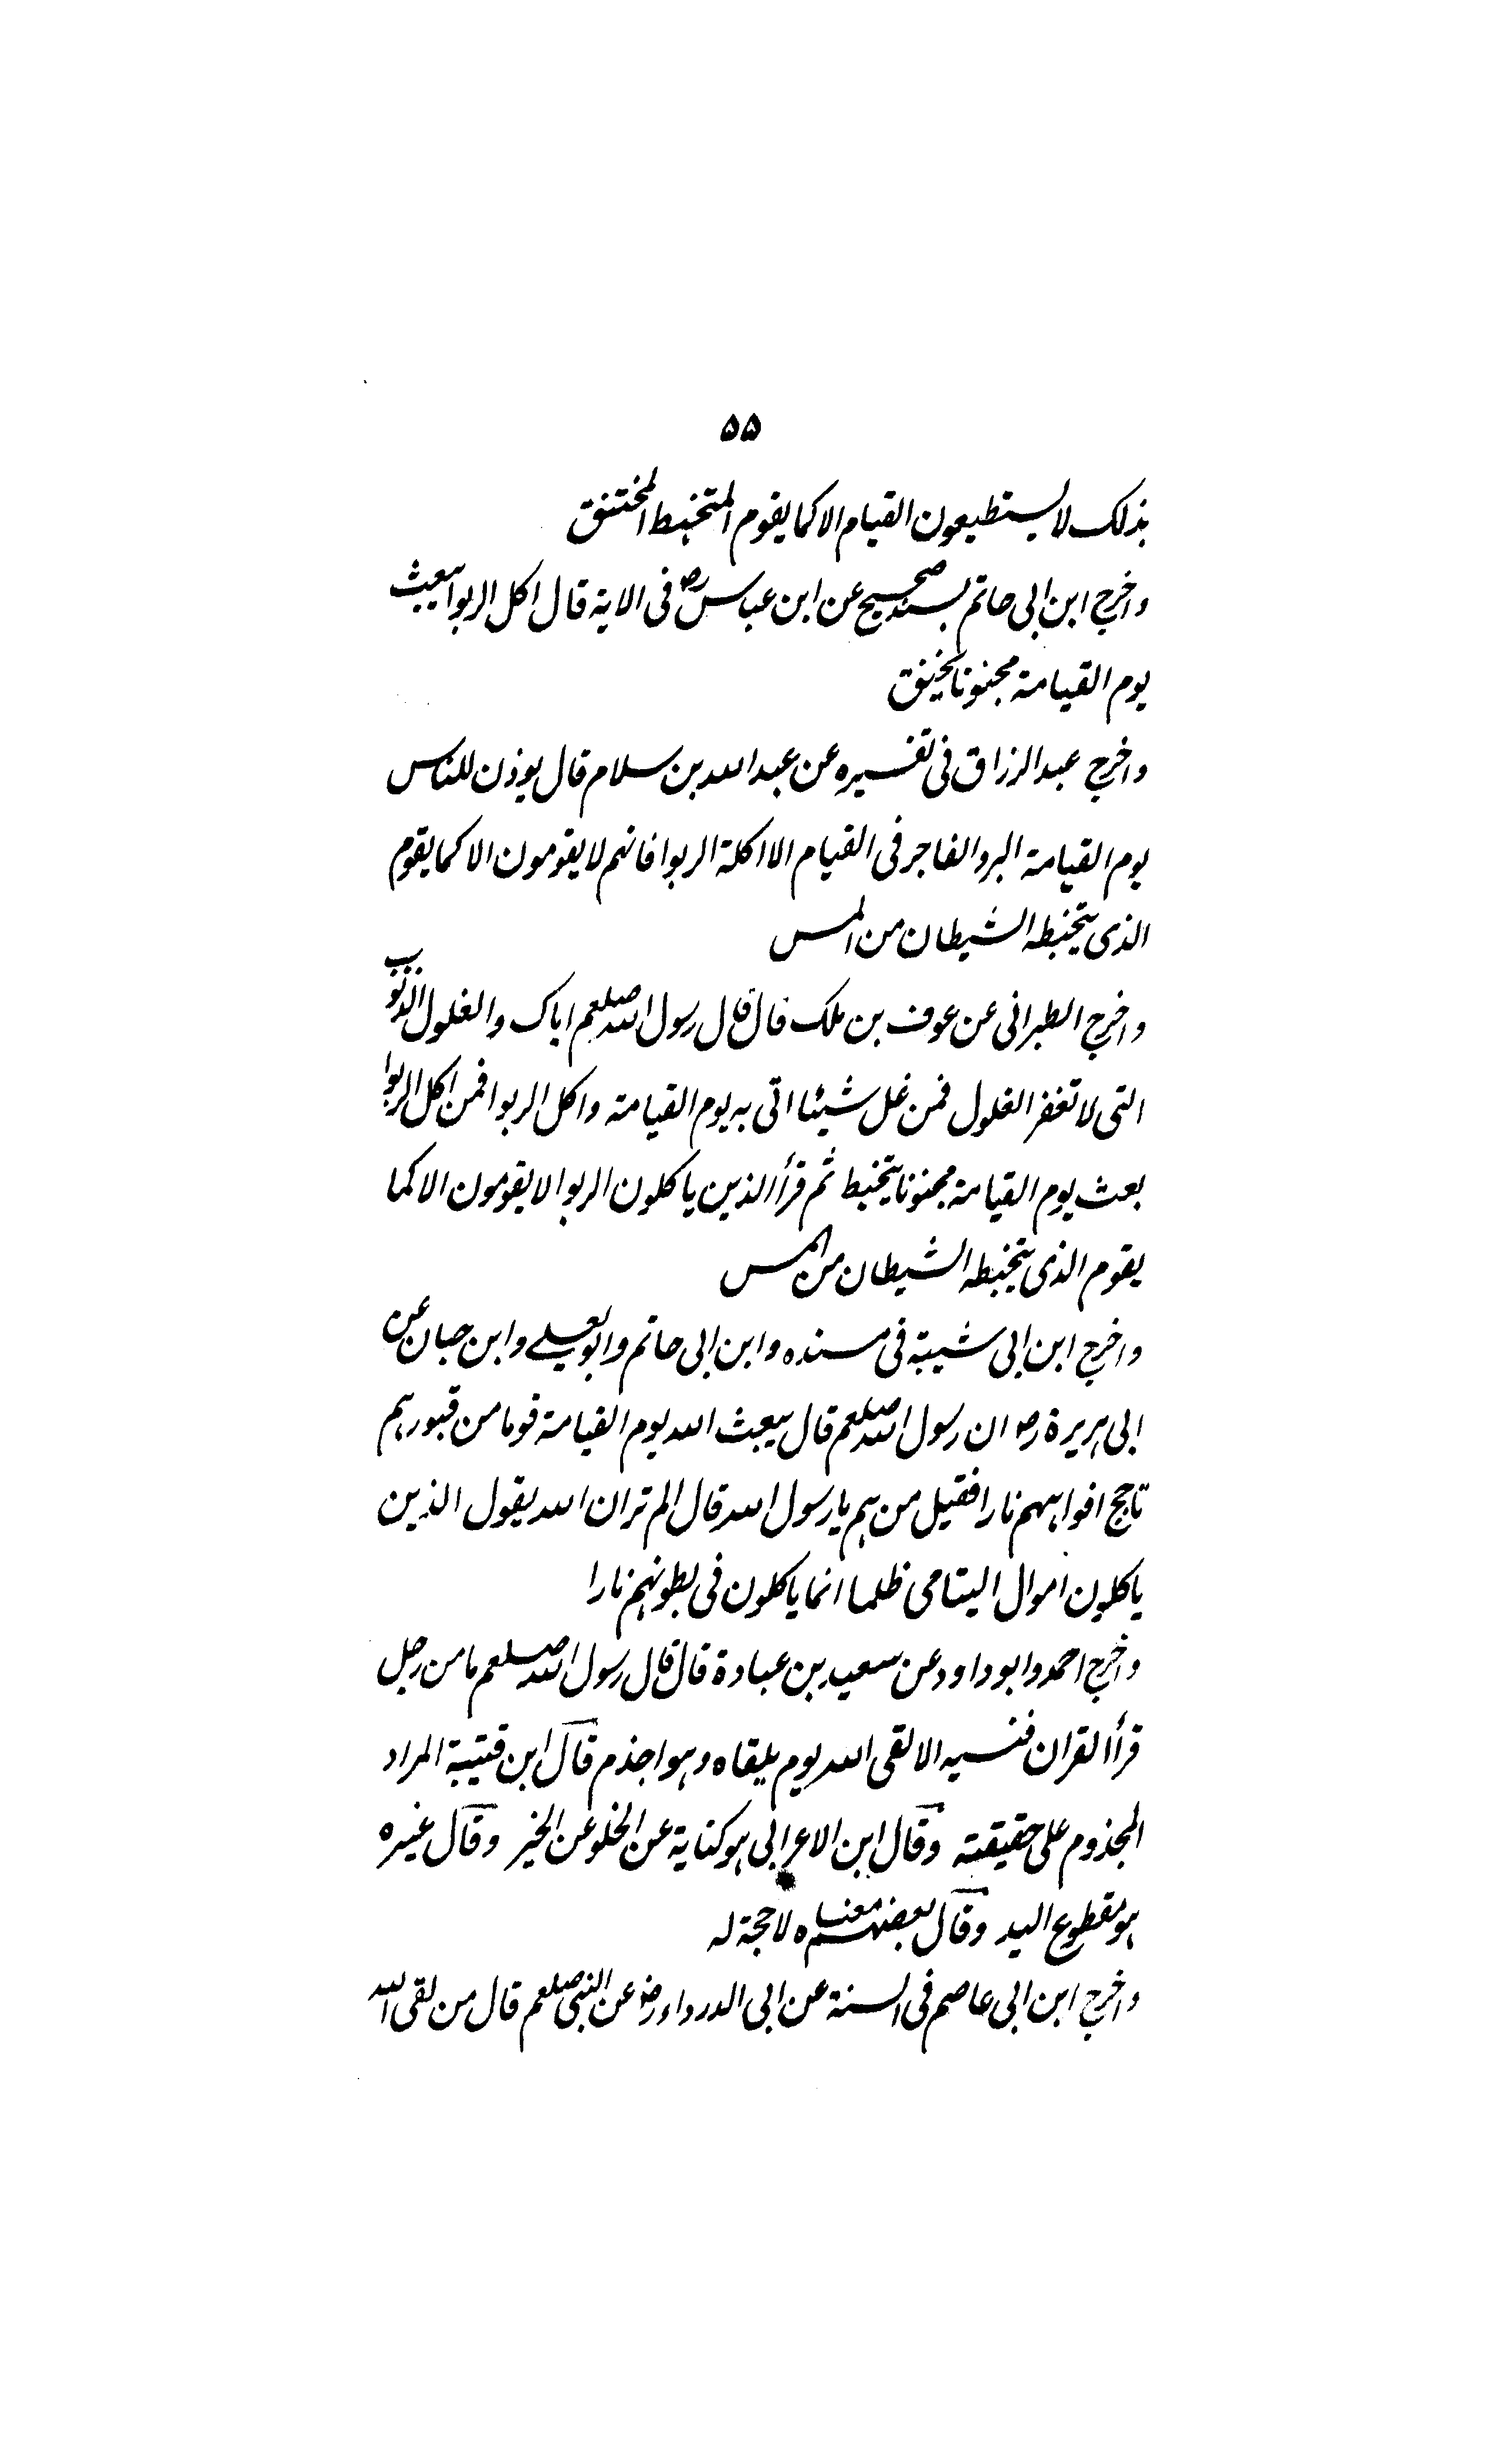 ۵۵
بذلک لا یستطیعون القیام الا کما یقوم المتخبط المختنق
واخرج ابن ابی حاتم بسند صحیح عن ابن عباس رض فی الایة قال اکل الربوا یبعث
یوم القیامة مجنونا یخنق
واخرج عبد الرزاق فی تفسیره عن عبد الله بن سلام قال یوذن للناس
یوم القیامة البر والفاجر فی القیام الا اکلة الربوا فانهم لا یقومون الا کما یقوم
الذی یتخبطه الشیطان من المس
واخرج الطبرانی عن عوف بن ملک قال قال رسول الله صلعم ایاک والغلول الذنوب
التی لا تغفر الغلول فمن غل شیئا اتی به یوم القیامة واکل الربوا فمن اکل الربوا
بعث یوم القیامة مجنونا یتخبط ثم قرأ الذین یاکلون الربوا لا یقومون الا کما
یقوم الذی یتخبطه الشیطان من المس
واخرج ابن ابی شیبة فی مسنده وابن ابی حاتم وابو یعلے وابن حبان عن
ابی ہریرة رض ان رسول الله صلعم قال یبعث الله یوم القیامة قوما من قبورہم
تاجج افواہهم نارا فقیل من ہم یا رسول الله قال الم تر ان الله یقول الذین
یاکلون اموال الیتامی ظلما انما یاکلون فی بطونہم نارا
واخرج احمد وابو داود عن سعید بن عبادة قال قال رسول الله صلعم ما من رجل
قرأ القران فنسیه الا لقی الله یوم یلقاه وہو اجذم قال ابن قتیبة المراد
المجذوم علی حقیقته وقال ابن الاعرابی ہو کنایة عن الخلو عن الخیر وقال غیره
ہو مقطوع الید وقال بعضہم معناه لا حجة له
واخرج ابن ابی عاصم فی السنة عن ابی الدرداء رض عن النبی صلعم قال من لقی الله